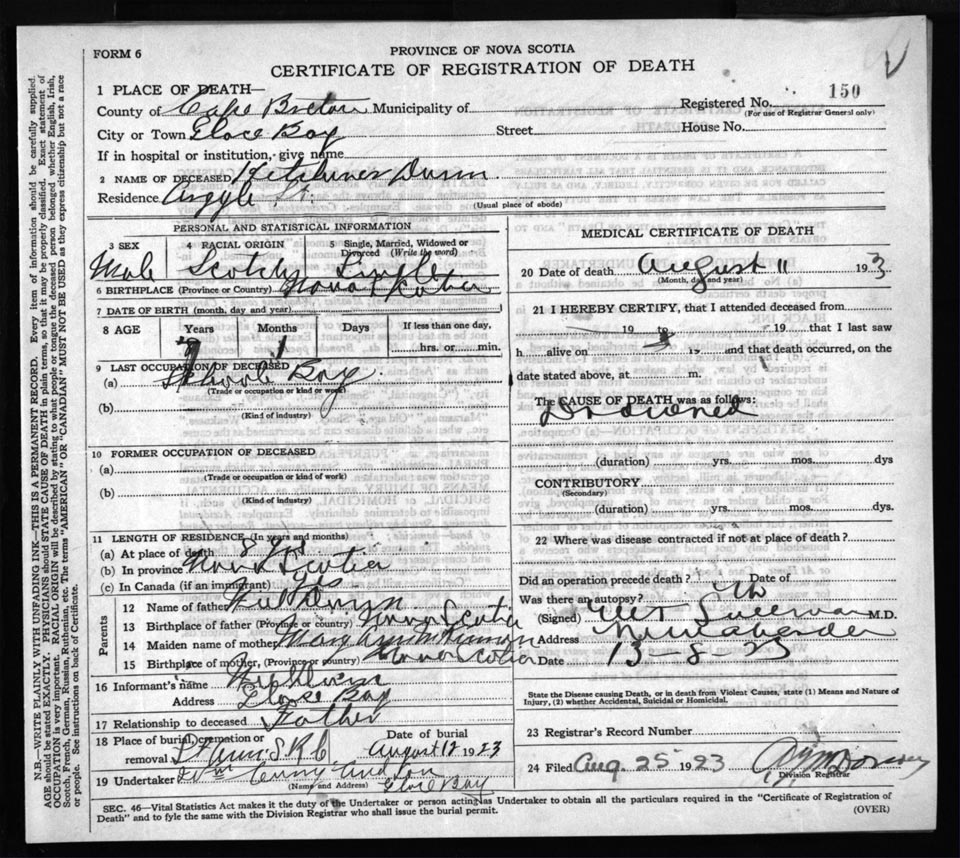 FORM 6
PROVINCE OF NOVA SCOTIA
CERTIFICATE OF REGISTRATION OF DEATH
1 PLACE OF DEATH—
County of Cape Breton Municipality of
Registered No. 150
(For use of Registrar General only)
City or Town Glace Bay Street House No.
If in hospital or institution, give name
2 NAME OF DECEASED Kitchiner Dunn
Residence Argyle St.
(Usual place of abode)
PERSONAL AND STATISTICAL INFORMATION
3 SEX
4 RACIAL ORIGIN
5 Single, Married, Widowed or Divorced (Write the word)
Male Scotch Single
6 BIRTHPLACE (Province or Country) Nova Scotia
7 DATE OF BIRTH (month, day and year)
8 AGE Years Months Days If less than one day,
hrs. or min.
9 LAST OCCUPATION OF DECEASED
(a) School Boy
(Trade or occupation or kind of work)
(b)
(Kind of industry)
10 FORMER OCCUPATION OF DECEASED
(a)
(Trade or occupation or kind of work)
(b)
(Kind of industry)
11 LENGTH OF RESIDENCE (In years and months)
(a) At place of death 8 yrs
(b) In province Nova Scotia
(c) In Canada (if an immigrant) yes
Parents
12 Name of father Dunn
13 Birthplace of father (Province or country) Nova Scotia
14 Maiden name of mother Mary Ann McKinnon
15 Birthplace of mother, (Province or country) Nova Scotia
16 Informant's name Dunn
Address Glace Bay
17 Relationship to deceased Father
18 Place of burial, cremation or removal St Anns R C
Date of burial August 12 1923
19 Undertaker Curry and Son
(Name and Address) Glace Bay
MEDICAL CERTIFICATE OF DEATH
20 Date of death August 11 1923
(Month, day and year)
21 I HEREBY CERTIFY, that I attended deceased from
19 19 that I last saw
h alive on 19 and that death occurred, on the
date stated above, at m.
The CAUSE OF DEATH was as follows:
Drowned
(duration) yrs. mos. dys
CONTRIBUTORY
(Secondary)
(duration) yrs. mos. dys.
22 Where was disease contracted if not at place of death?
Did an operation precede death? Date of
Was there an autopsy?
(Signed) Sullivan M.D.
Address
Date 13-8-23
State the Disease causing Death, or in death from Violent Causes, state (1) Means and Nature of
Injury, (2) whether Accidental, Suicidal or Homicidal.
23 Registrar's Record Number
24 Filed Aug. 25 1923
Division Registrar
SEC. 46—Vital Statistics Act makes it the duty of the Undertaker or person acting as Undertaker to obtain all the particulars required in the "Certificate of Registration of
Death" and to fyle the same with the Division Registrar who shall issue the burial permit.
(OVER)
N.B.—WRITE PLAINLY WITH UNFADING INK—THIS IS A PERMANENT RECORD. Every item of information should be carefully supplied.
AGE should be stated EXACTLY. PHYSICIANS should STATE CAUSE OF DEATH in plain terms, so that it may be properly classified. Exact statement of
OCCUPATION is very important. RACIAL ORIGIN will be described by stating to what people or tongue the deceased person belonged whether English, Irish,
Scotch, French, German, Russian, Ruthenian, etc. The terms "AMERICAN" OR "CANADIAN" MUST NOT BE USED as they express citizenship but not a race
or people. See instructions on back of Certificate.